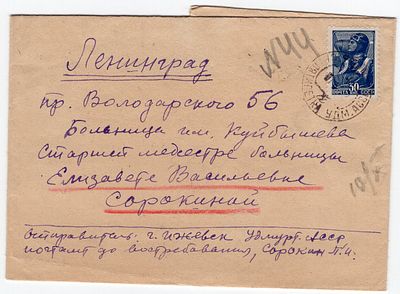 Ленинград
N44
50
ПОЧТА СССР
пр. Володарского 56
Больница им. Куйбышева
Старшей медсестре больницы
Елизавете Васильевне
Сорокиной
отправитель г. Ижевск Удмурт. АССР
почтамт до востребования, Сорокин